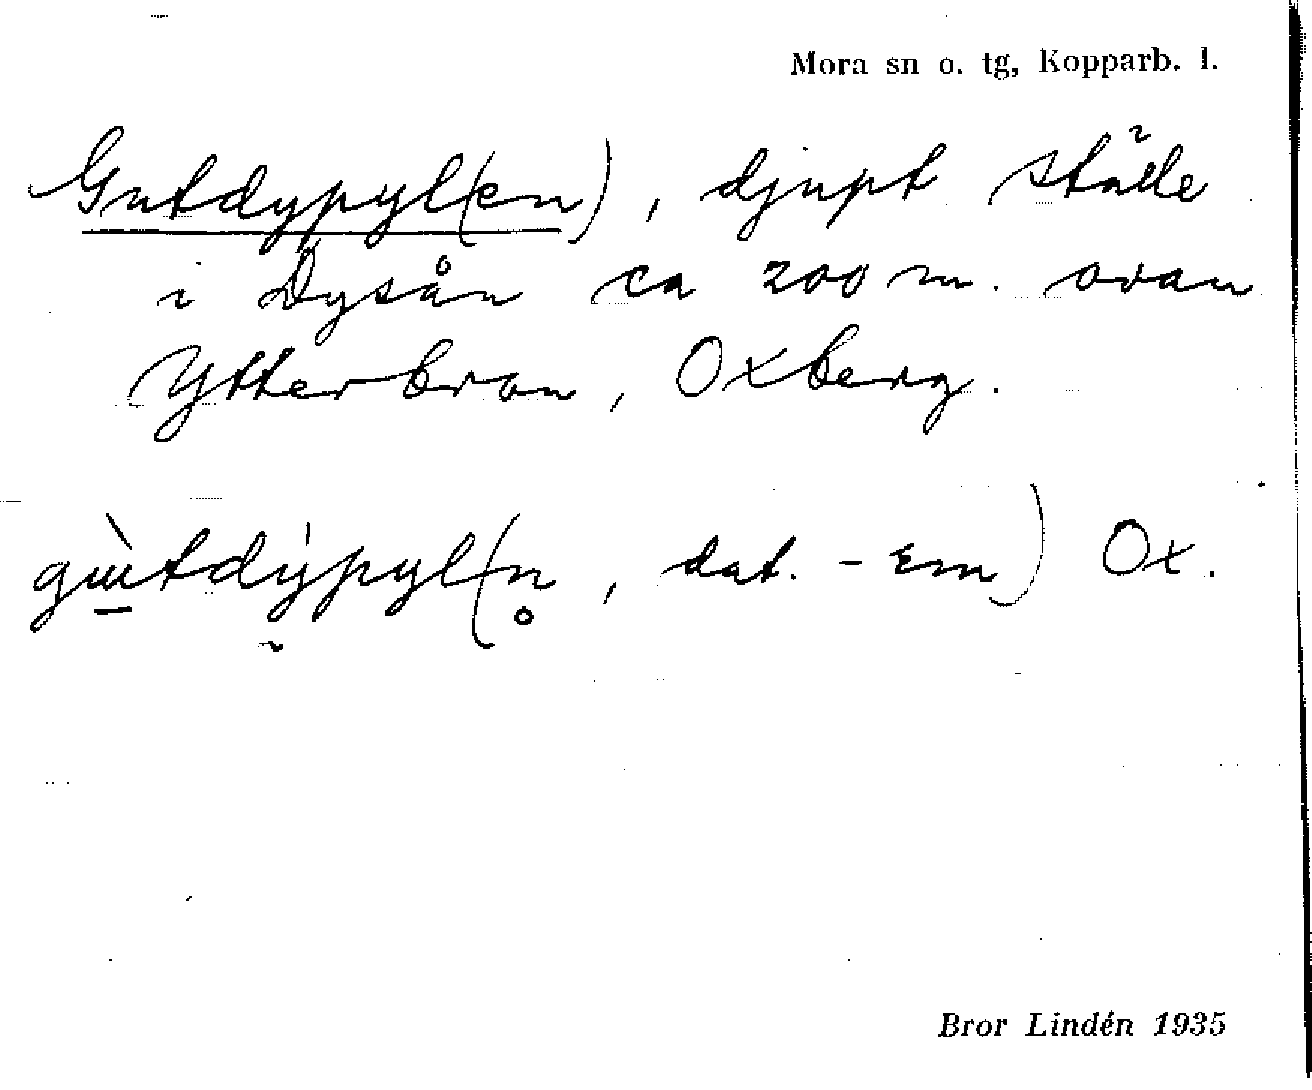 Mora sn o. tg, Kopparb. l.
Gutdypyl(en), djupt ställe
i Dysån ca 200 m. ovan
Ytterbron, Oxberg.
gɯ̀tdýpyl(n̥, dat. -ɛm) Ox.
Bror Lindén 1935